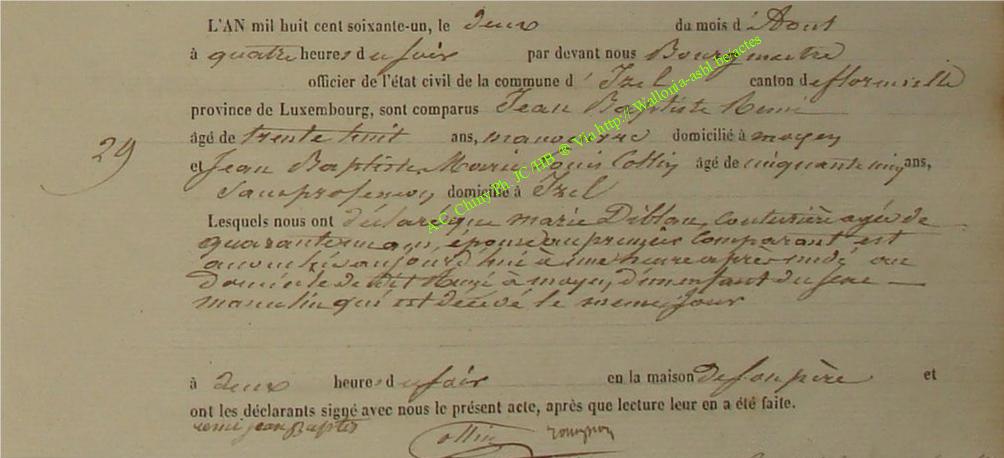 L'AN mil huit cent soixante-un, le deux du mois d'Aout
à quatre heures du soir par devant nous Bourgmestre
officier de l'état civil de la commune d'Izel canton de florenville
province de Luxembourg, sont comparus Jean Baptiste Remi
âgé de trente huit ans, manoeuvre domicilié à moyen
29
et Jean Baptiste Marie Louis Collin âgé de cinquante cinq ans,
Sans profession domicilié à Izel
Lesquels nous ont déclaré que marie Diblan, couturière agée de
quarante ans, epouse du premier Comparant est
accouchée aujourd'hui à une heure après midi au
domicile de dit Remi à moyen, d'un enfant du sexe
masculin qui est décédé le meme jour
à deux heures du soir en la maison de son père et
ont les déclarants signé avec nous le présent acte, après que lecture leur en a été faite.
remi jean Baptis
Collin
A.C. Chiny Ph. JC /HB ® Via http://Wallonia-asbl.be/actes